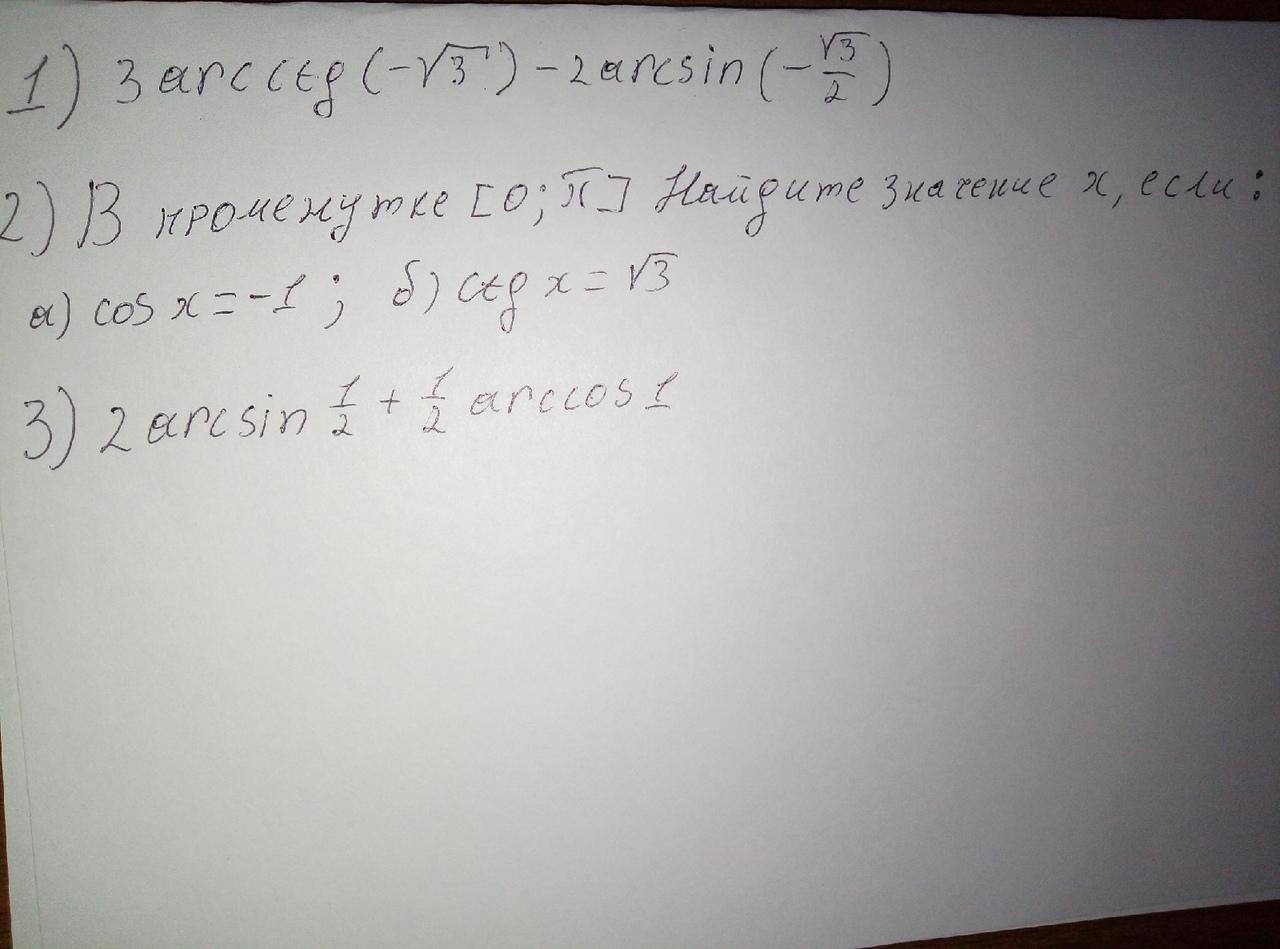 1) 3 arcctg (-√3) - 2 arcsin (-√3/2)
2) В промежутке [0; π] Найдите значение x, если:
а) cos x = -1; б) ctg x = √3
3) 2 arcsin 1/2 + 1/2 arccos 1